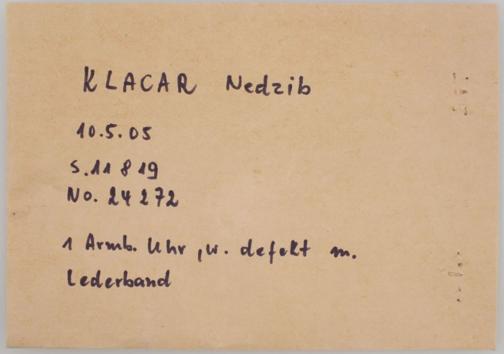 KLACAR Nedzib
10.5.05
S.11 8 19
No. 24 272
1 Armb. Uhr, w. defekt m.
Lederband